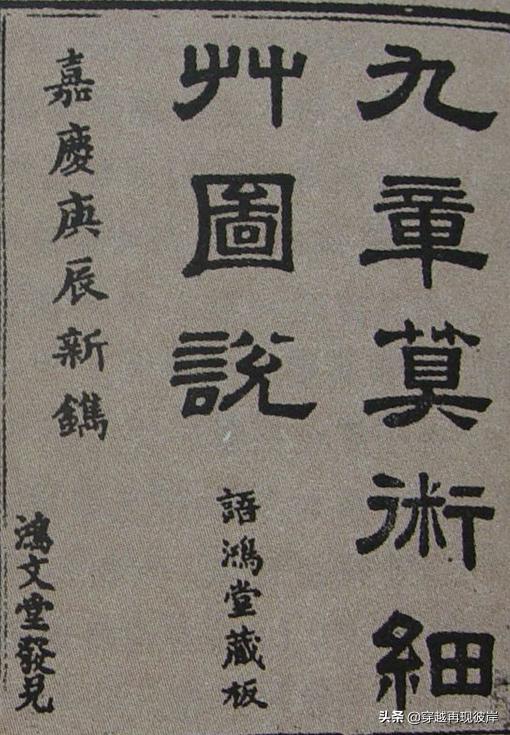 九章算術細
艸圖說
語鴻堂藏板
嘉慶庚辰新鐫
鴻文堂發兌
头条 @穿越再现彼岸